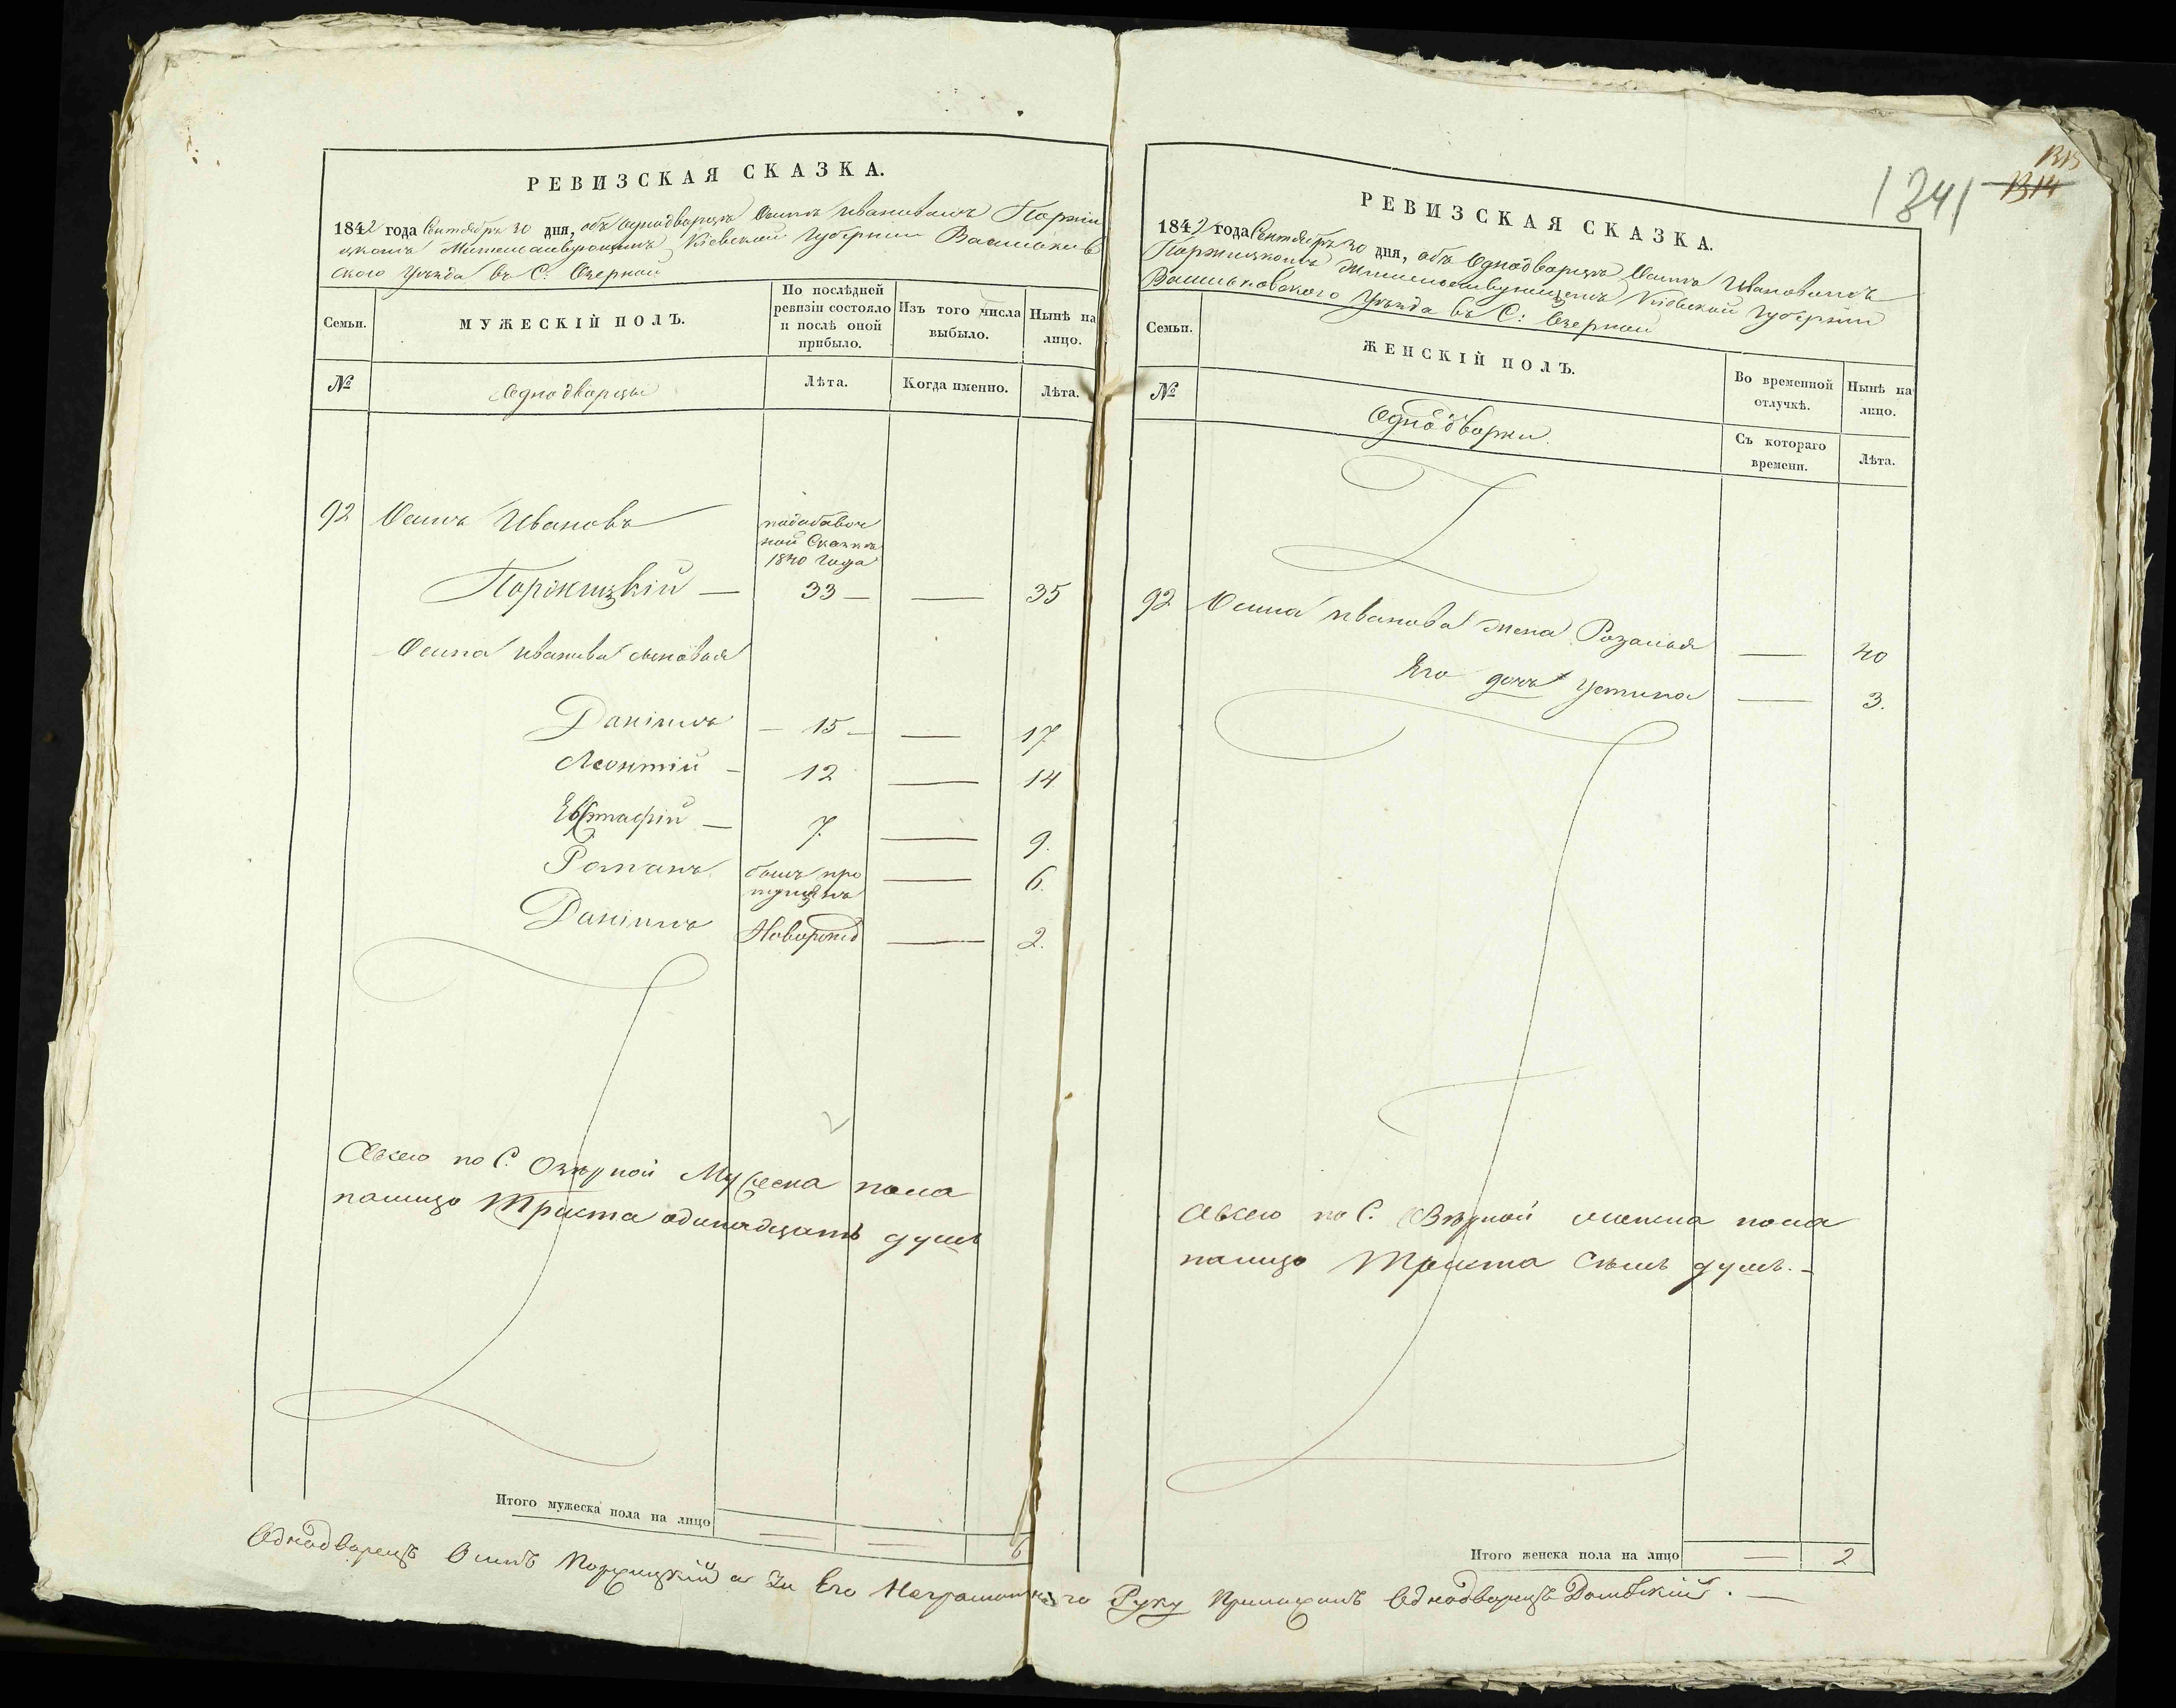 РЕВИЗСКАЯ СКАЗКА.
1842 года Сентября 30 дня, объ Однодворцѣ Осипѣ Ивановичѣ Поржи
цкомъ Жительствующемъ Кіевской Губерніи Васильков
ского Уѣзда въ С: Озерной
Семьи.
МУЖЕСКІЙ ПОЛЪ.
По послѣдней
ревизіи состояло
и послѣ оной
прибыло.
Изъ того числа
выбыло.
Нынѣ на
лицо.
№
Однодворцы
Лѣта.
Когда именно.
Лѣта.
92 Осипъ Ивановъ
подобавоч
ной Сказкѣ
1840 года
Поржицкій — 33 — — 35
Осипа Иванова сыновья
Даніилъ — 15 — — 17
Леонтій — 12 — 14
Евстафій — 7. — 9.
Романъ былъ про
пущенъ — 6.
Даніилъ Новорожд — 2.
Всего по С. Озерной Мужеска пола
налицо Триста одинадцать душъ
Итого мужеска пола на лицо — — 6
1341
1315
1314
РЕВИЗСКАЯ СКАЗКА.
1842 года Сентября 30 дня, объ Однодворцѣ Осипѣ Ивановичѣ
Поржицкомъ Жительствующемъ Кіевской Губерніи
Васильковского Уѣзда въ С: Озерной
Семьи.
ЖЕНСКІЙ ПОЛЪ.
Во временной
отлучкѣ.
Нынѣ на
лицо.
№
Однодворки
Съ котораго
времени.
Лѣта.
92 Осипа Иванова жена Розалія — 40
Его дочь Устина — 3.
Всего по С. Озерной женска пола
налицо Триста Семь душъ. –
Итого женска пола на лицо — 2
Однодворецъ Осипъ Поржицкій а За Его Неграмотнаго Руку Приложилъ Однодворецъ Домбскій. —